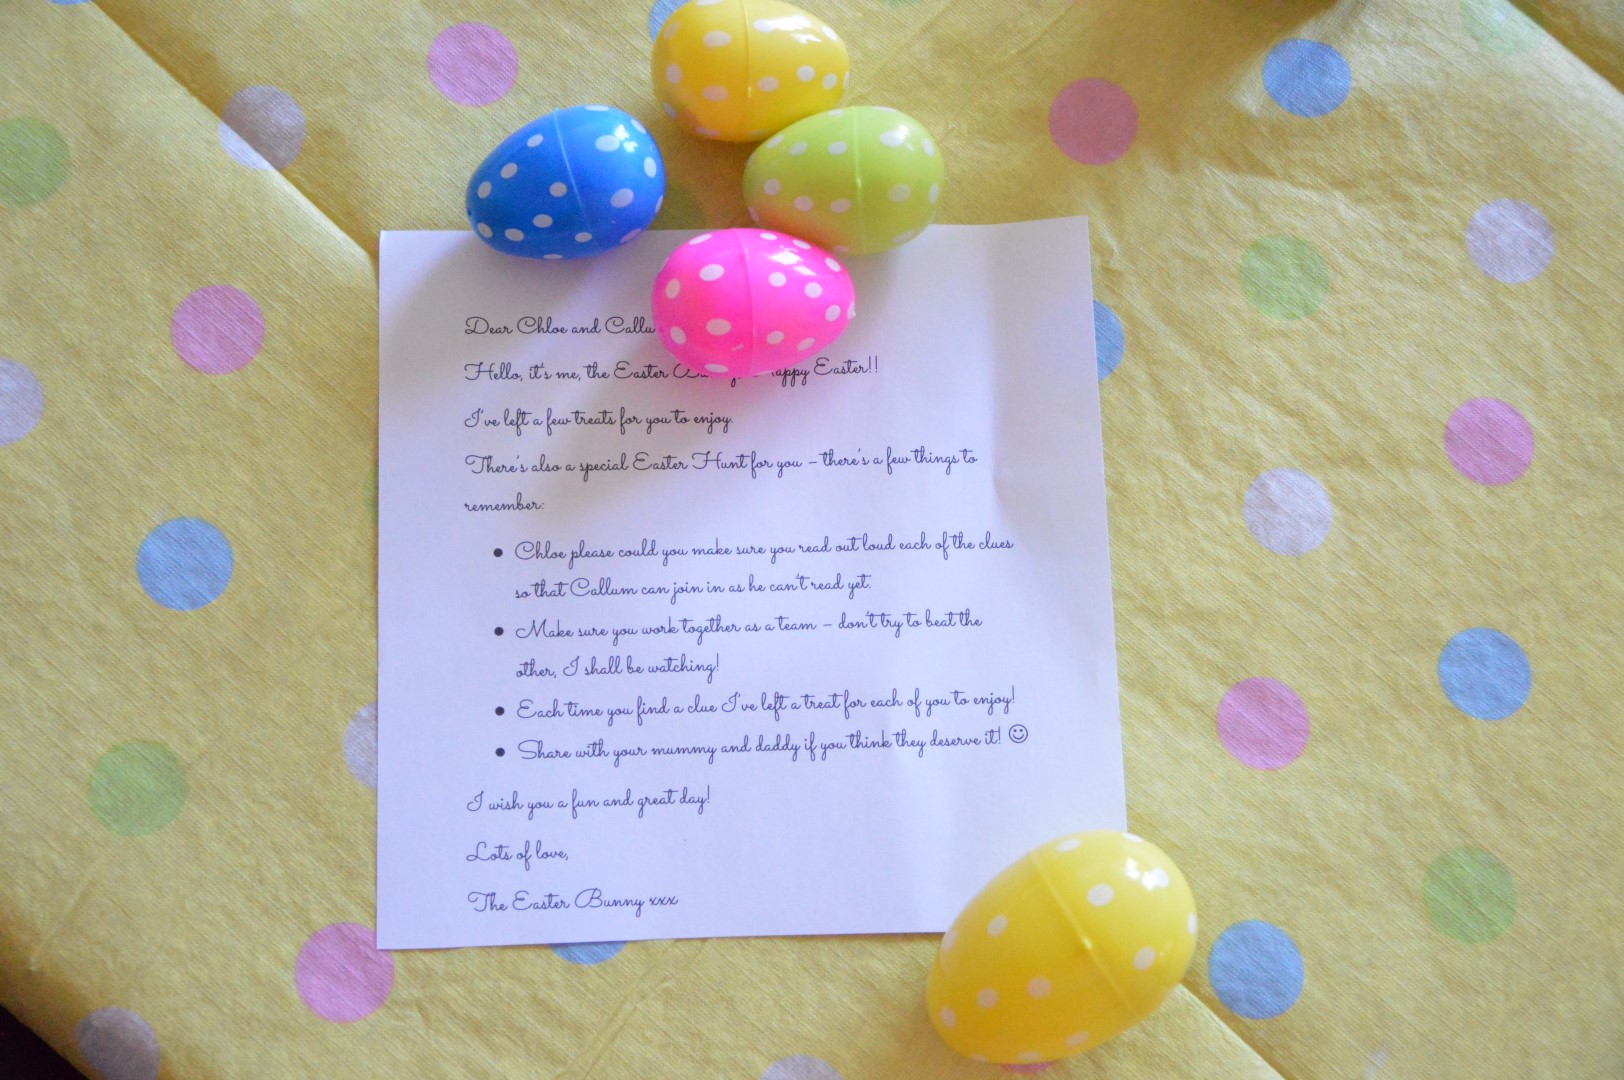 Dear Chloe and Callu
Hello, it's me, the Easter Happy Easter!!
I've left a few treats for you to enjoy.
There's also a special Easter Hunt for you – there's a few things to
remember:
• Chloe please could you make sure you read out loud each of the clues
so that Callum can join in as he can't read yet.
• Make sure you work together as a team – don't try to beat the
other, I shall be watching!
• Each time you find a clue I've left a treat for each of you to enjoy!
• Share with your mummy and daddy if you think they deserve it! ☺
I wish you a fun and great day!
Lots of love,
The Easter Bunny xxx